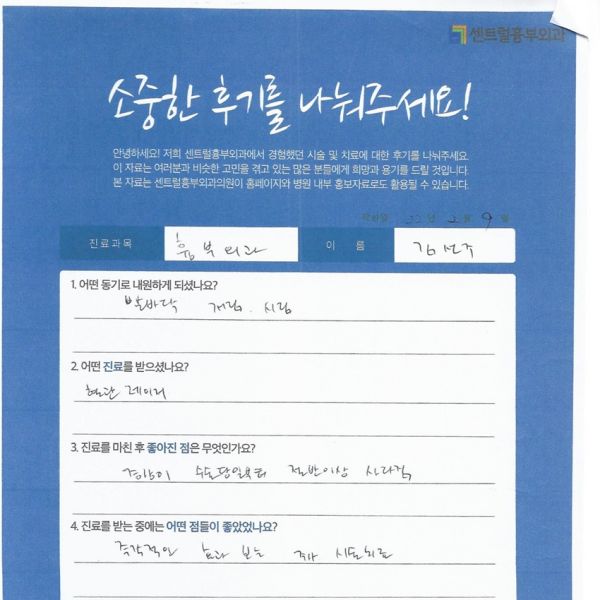 센트럴흉부외과
소중한 후기를 나눠주세요!
안녕하세요! 저희 센트럴흉부외과에서 경험했던 시술 및 치료에 대한 후기를 나눠주세요.
이 자료는 여러분과 비슷한 고민을 겪고 있는 많은 분들에게 희망과 용기를 드릴 것입니다.
본 자료는 센트럴흉부외과의원이 홈페이지와 병원 내부 홍보자료로도 활용될 수 있습니다.
22 년 2 월 9 일
진료과목 흉부외과 이 름 김선주
1. 어떤 동기로 내원하게 되셨나요?
발바닥 저림. 시림
2. 어떤 진료를 받으셨나요?
혈관 레이저
3. 진료를 마친 후 좋아진 점은 무엇인가요?
수술당일부터 절반이상 사라짐
4. 진료를 받는 중에는 어떤 점들이 좋았었나요?
즉각적인 효과 보는 주사 시술치료